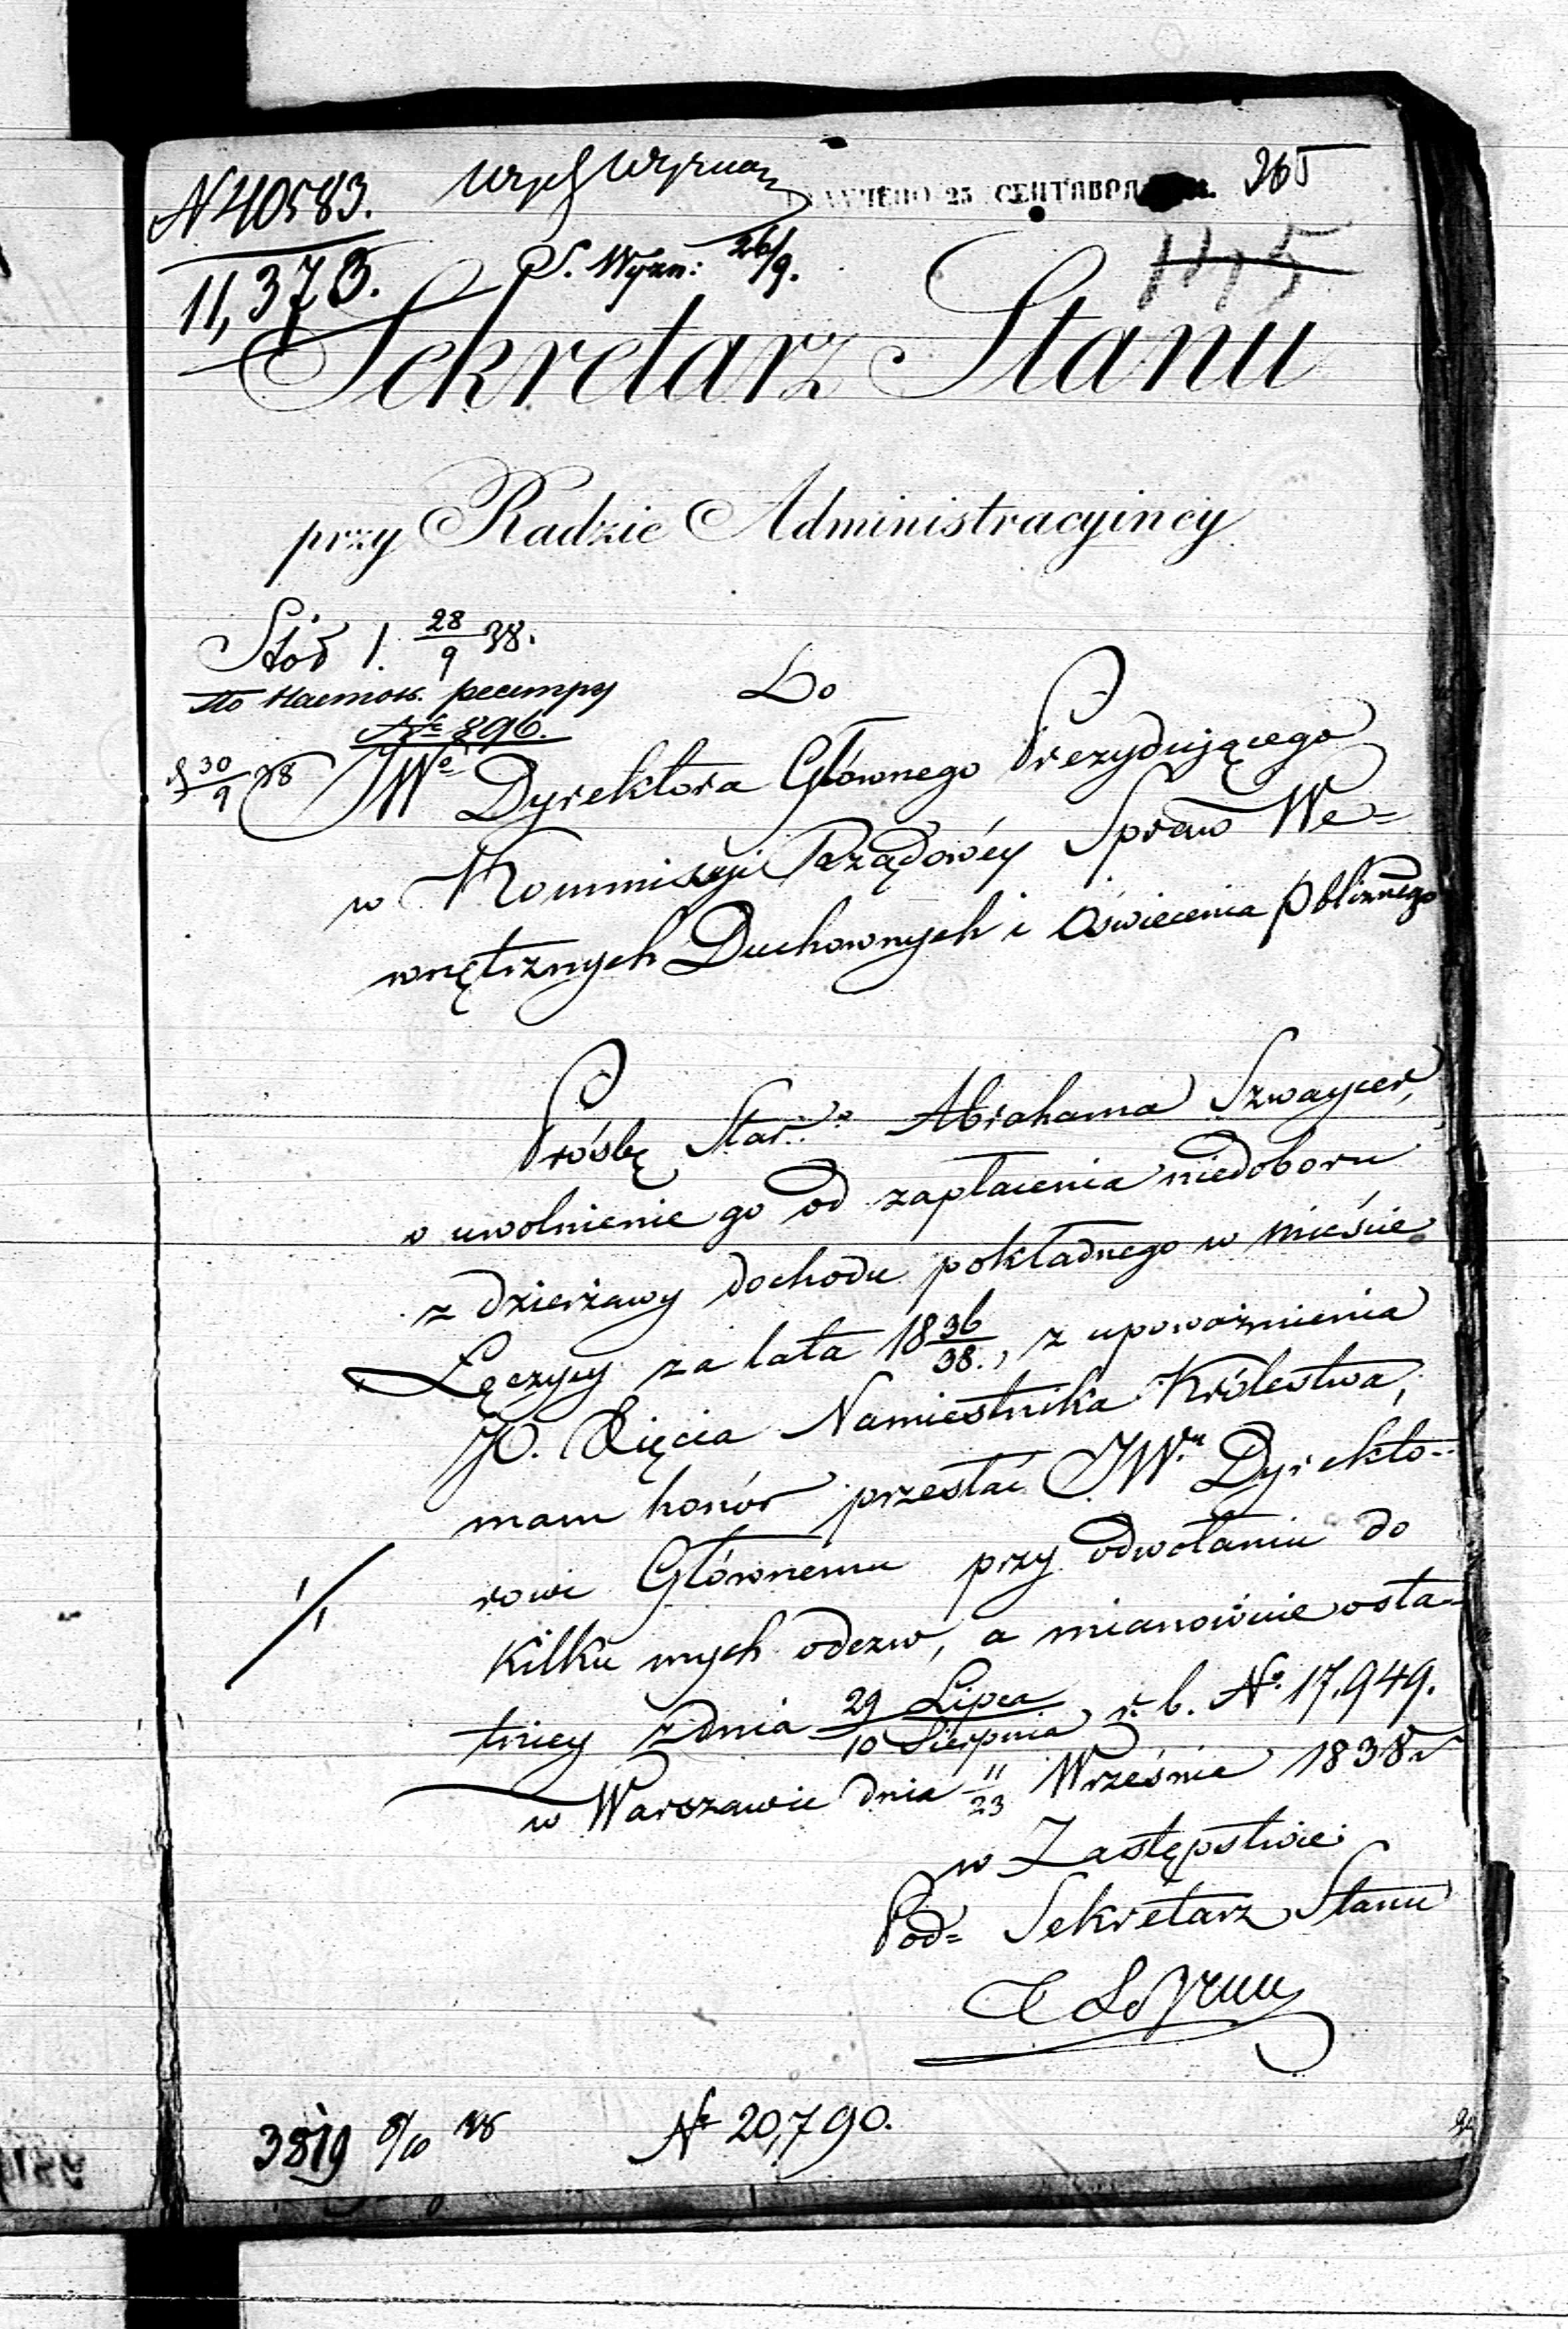 N 40583.
11,373.
S. Wyzn: 26/9.
25 СЕНТЯБРЯ
265
Sekretarz Stanu
przy Radzie Administracyiney
28/9 38.
По настол. реестру
№ 896.
30/9 38
Do
JWo Dyrektora Głównego Prezydującego
w Kommissyi Rządowéy Spraw We=
wnętrznych Duchownych i Oświecenia Pblicznego
Prośbę Star.o Abrahama Szwaycer,
o uwolnienie go od zapłacenia niedoboru
z dzierżawy dochodu pokładnego w mieście
Łęczycy za lata 1836/38., z upoważnienia
JO. Xięcia Namiestnika Królestwa,
mam honór przesłać JW.u Dyrekto-
rowi Głównemu przy odwołaniu do
kilku mych odezw, a mianowicie osta-
tniey z dnia 29 Lipca/10 Sierpnia r. b. No. 17,949.
w Warszawie dnia 11/23 Września 1838 r
w Zastępstwie
Pod= Sekretarz Stanu
3819 8/10 38
No 20,790.